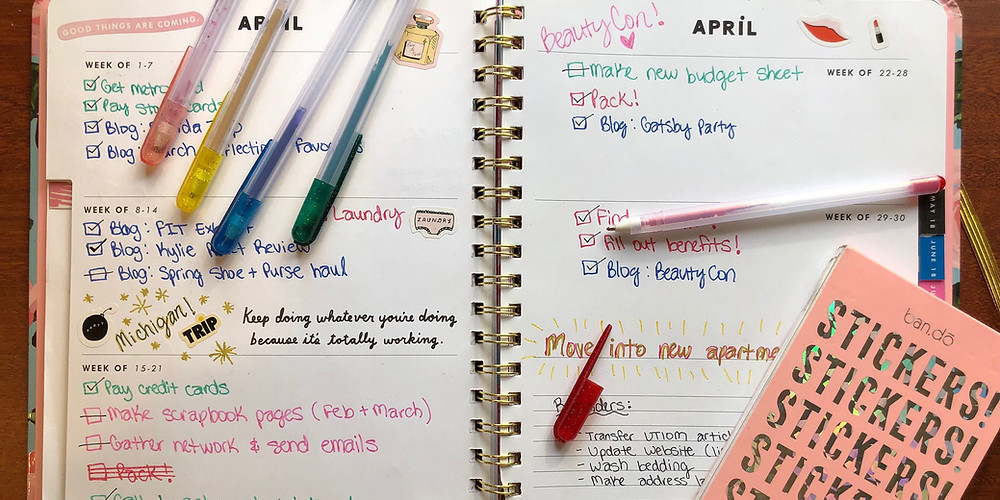 GOOD THINGS ARE COMING.
APRIL
WEEK OF 1-7
Get
Pay cards
Blog:
Blog:
WEEK OF 8-14
Laundry
LAUNDRY
Blog: FIT
Blog: Kylie Review
Blog: Spring Shoe + Purse haul
Michigan!
TRIP
Keep doing whatever you're doing
because it's totally working.
WEEK OF 15-21
Pay credit cards
Make scrapbook pages (Feb + March)
Gather network & send emails
Pack!
BeautyCon!
APRIL
WEEK OF 22-28
Make new budget sheet
Pack!
Blog: Gatsby Party
WEEK OF 29-30
Find
Fill out benefits!
Blog: BeautyCon
MAY 18
JUNE 18
Move into new
- Transfer UTIOM
- Update website
- Wash bedding
- Make address
ban.dō
STICKERS!
STICKERS!
STICKERS!
STICKERS!
STICKERS!